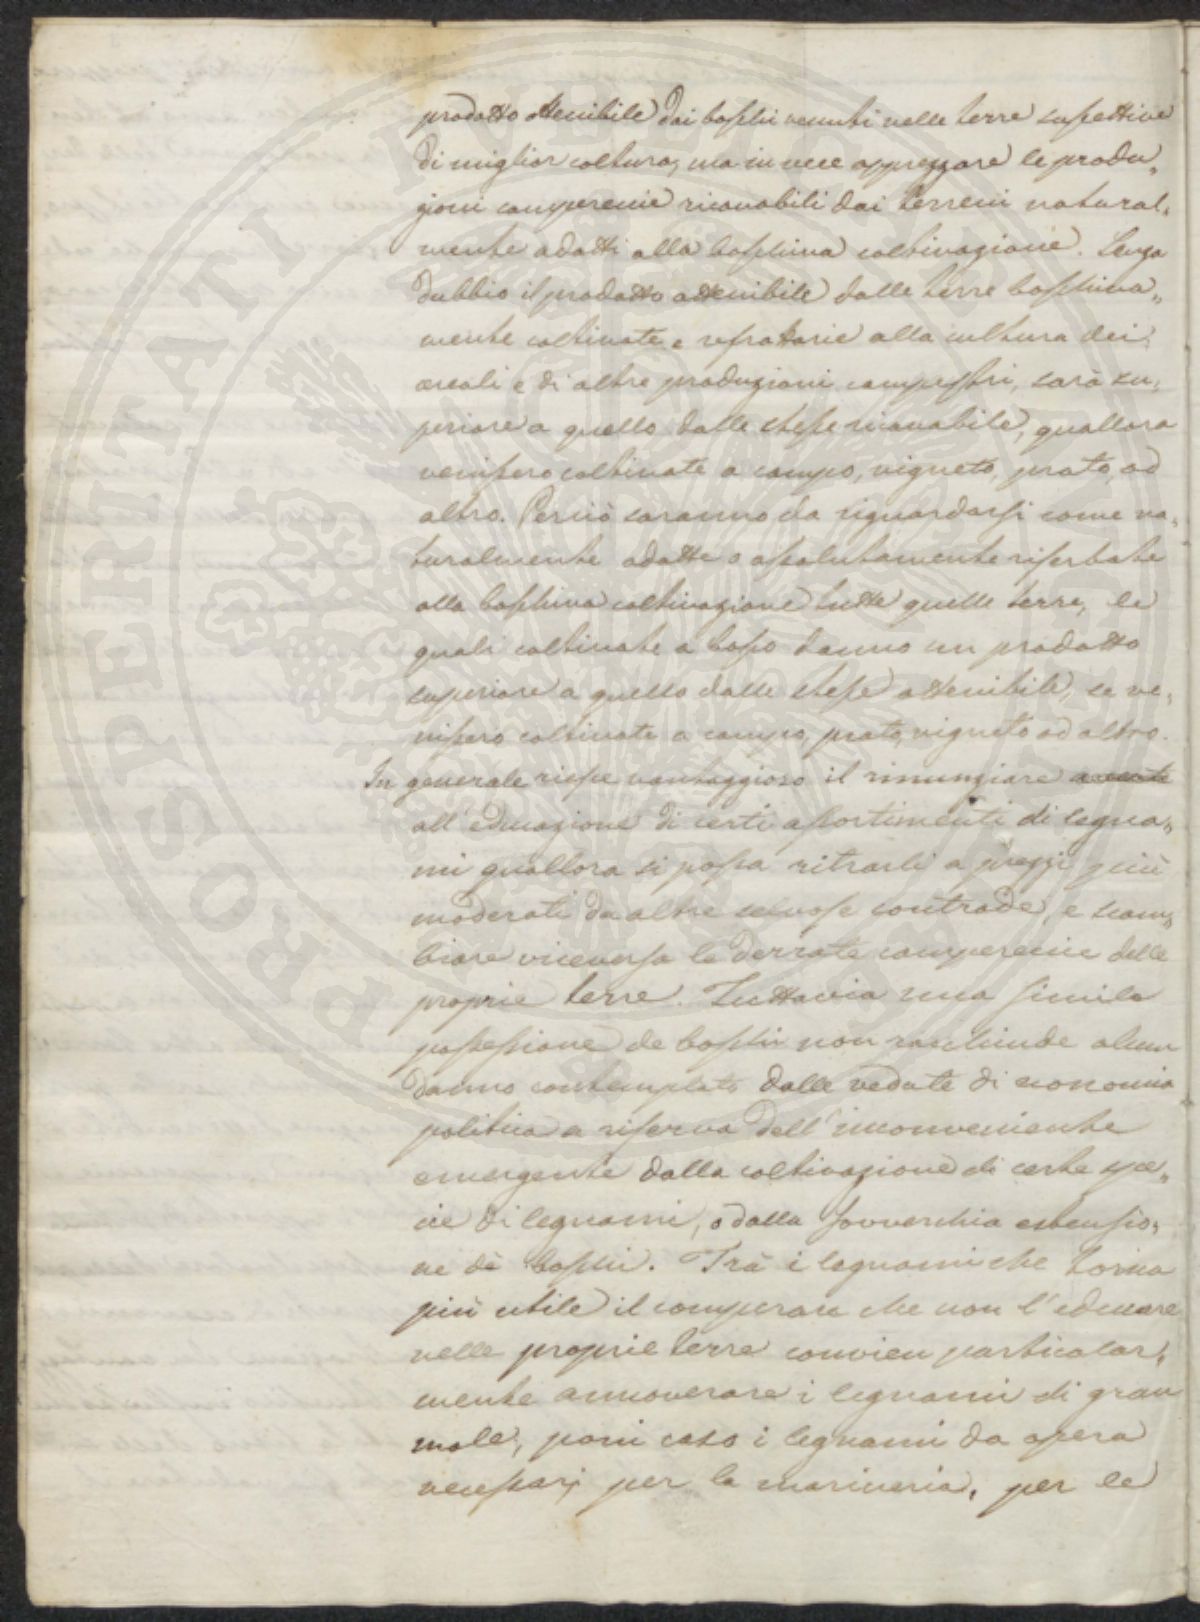 prodotto ottenibile dai boschi venuti nelle terre suscettive
di miglior coltura, ma in vece apprezzare le produ„
zioni camperecie ricavabili dai terreni natural„
mente adatti alla boschiva coltivazione. Senza
dubbio il prodotto ottenibile dalle terre boschiva„
mente coltivate e refrattarie alla cultura dei
cereali e di altre produzioni campestri, sarà su„
periore a quello dalle stesse ricavabile, quallora
venissero coltivate a campo, vigneto, prato, od
altro. Perciò saranno da riguardarsi come na„
turalmente adatte o assolutamente riserbate
alla boschiva coltivazione tutte quelle terre, le
quali coltivate a bosco danno un prodotto
superiore a quello dalle stesse ottenibile, se ve„
nissero coltivate a campo, prato, vigneto od altro.
In generale riesce vantaggioso il rinunziare
all'educazione di certi assortimenti di legna„
mi quallora si possa ritrarli a prezzi più
moderati da altre selvose contrade, e scam„
biare viceversa le derrate camperecie delle
proprie terre. Tuttavia una simile
possessione de boschi non racchiude alcun
danno contemplato dalle vedute di economia
politica a riserva dell'inconveniente
emergente dalla coltivazione di certe spe„
cie di legnami, o dalla sovverchia estensio„
ne dè boschi. Trà i legnami che torna
più utile il comperare che non l'educare
nelle proprie terre convien particolar„
mente annoverare i legnami di gran
mole, poni caso i legnami da opera
necessarj per la marineria, per le